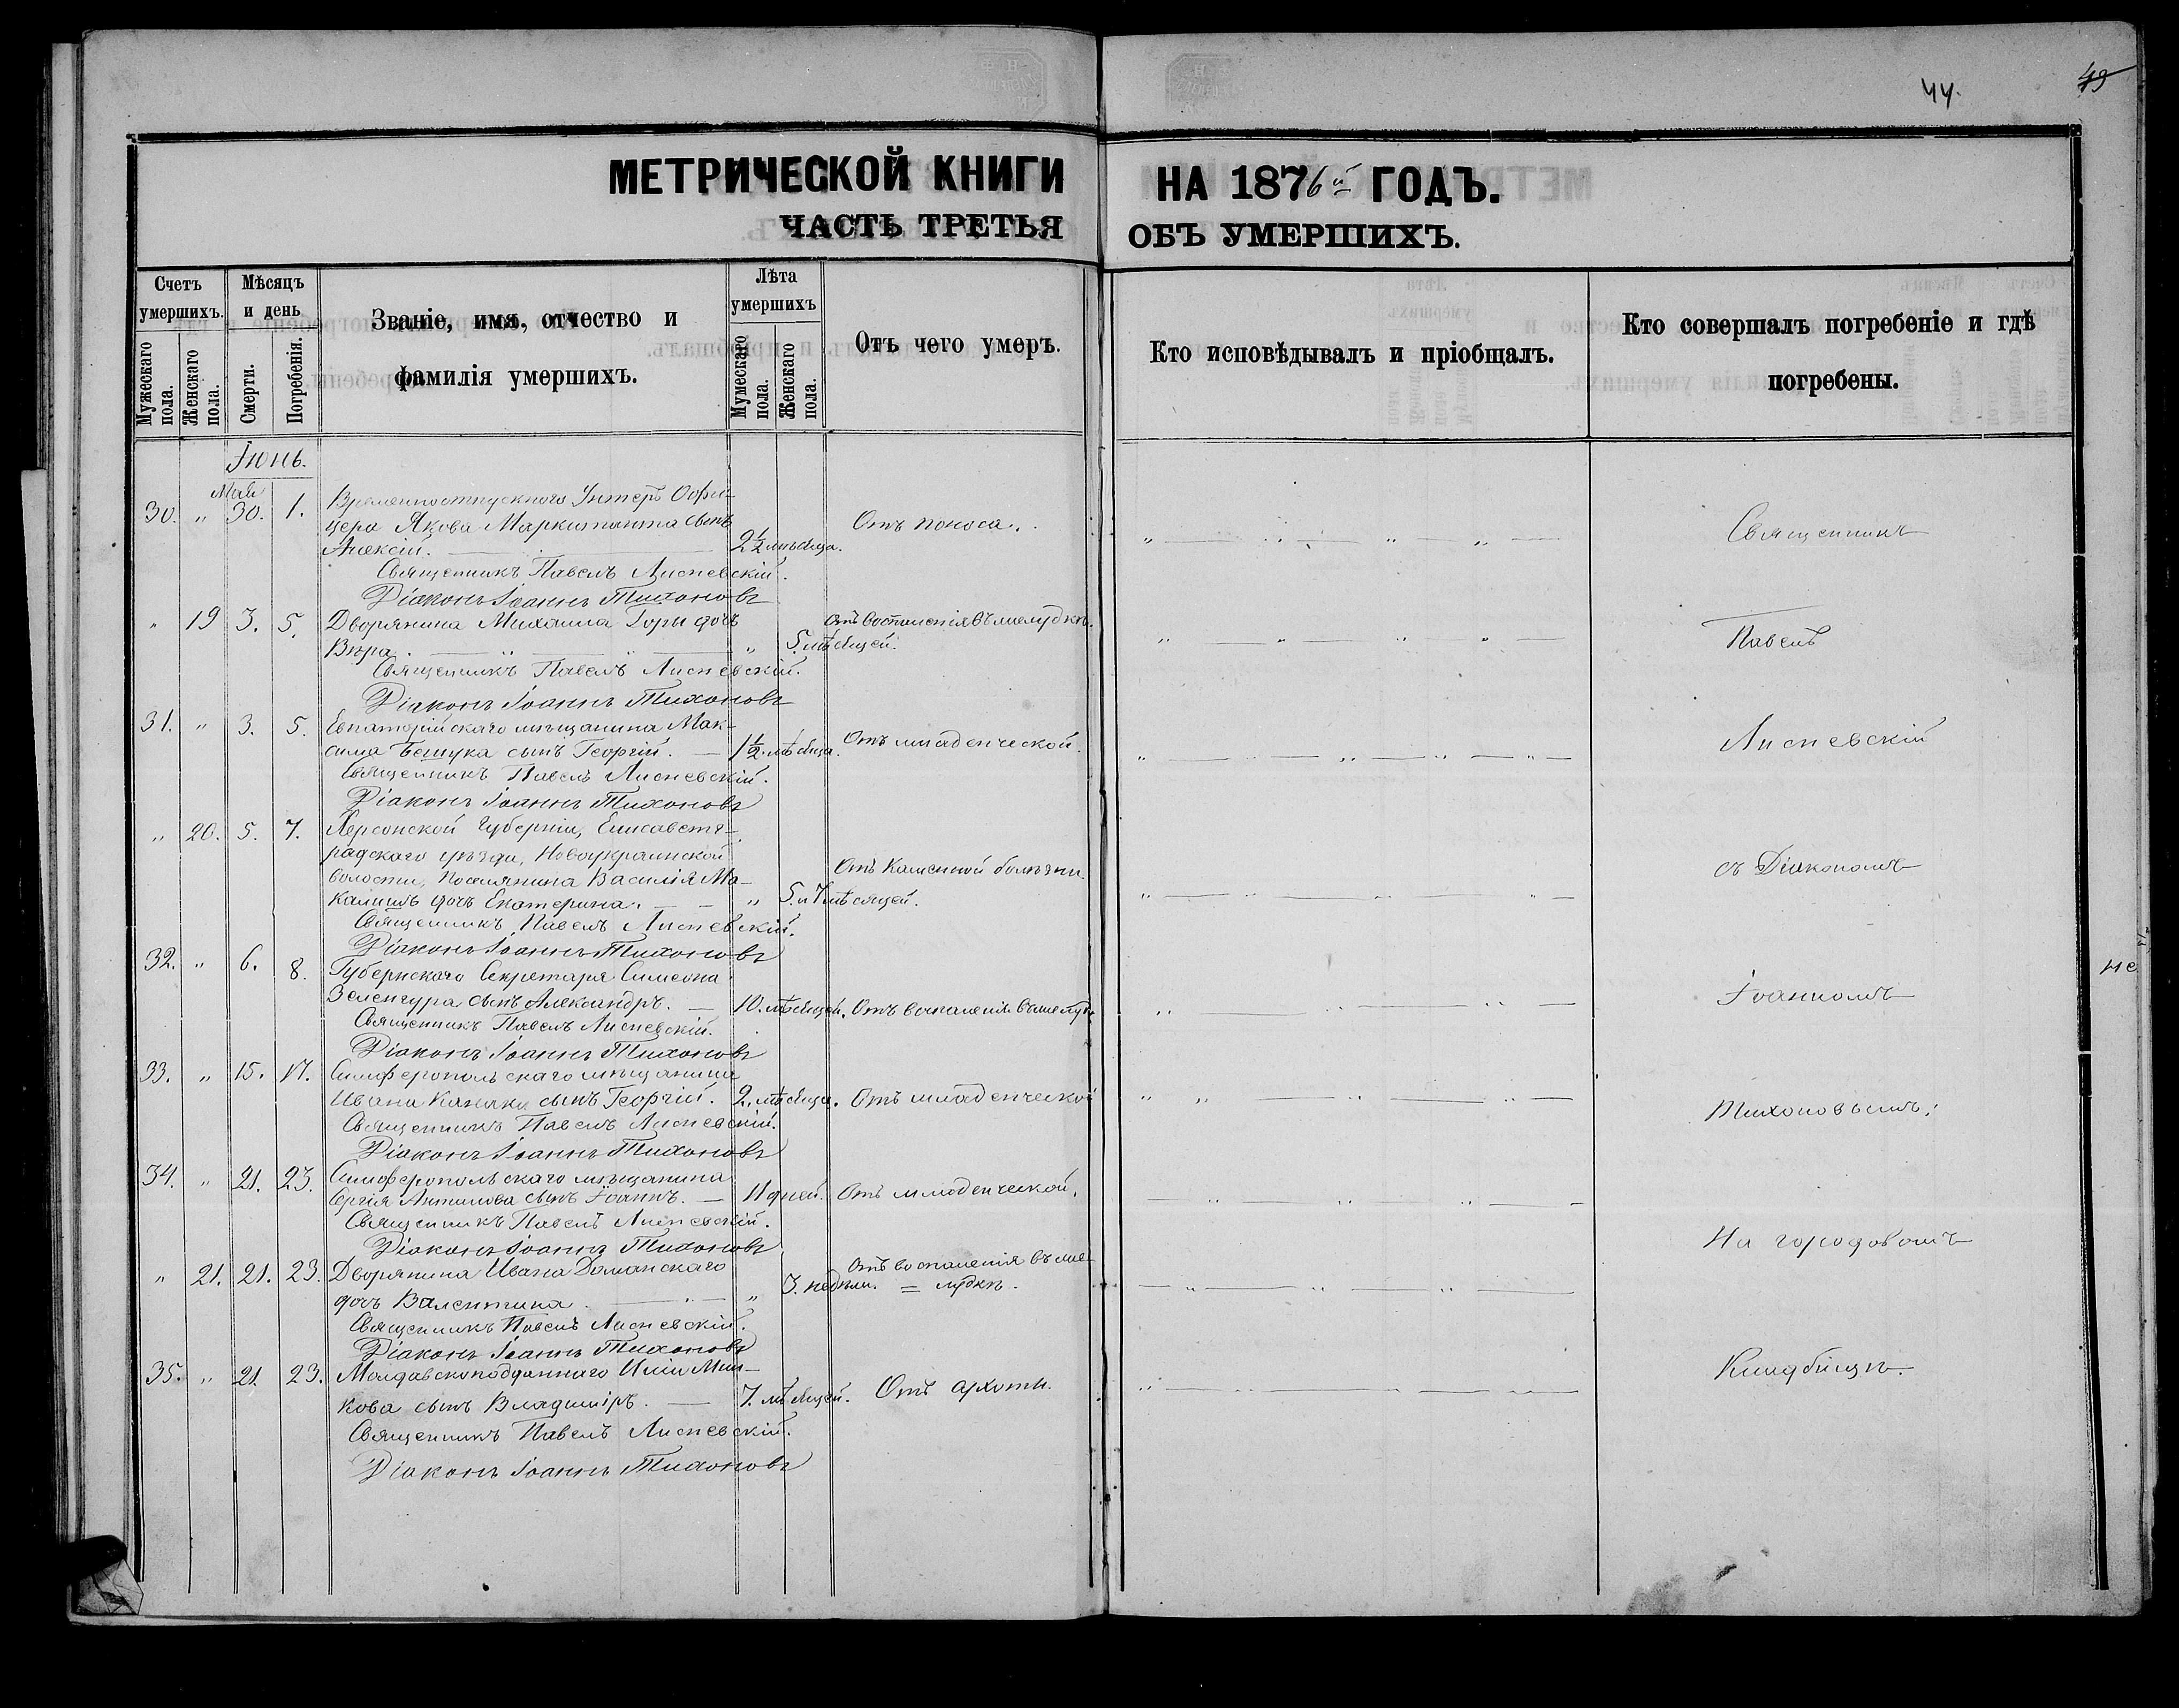 44.
49
МЕТРИЧЕСКОЙ КНИГИ НА 1876й ГОДЪ.
ЧАСТЬ ТРЕТЬЯ ОБЪ УМЕРШИХЪ.
Счетъ умершихъ.
Мужескаго пола.
Женскаго пола.
Мѣсяцъ и день
Смерти.
Погребенія.
Званіе, имя, отчество и
фамилія умершихъ.
Лѣта умершихъ
Мужескаго пола.
Женскаго пола.
Отъ чего умеръ.
Кто исповѣдывалъ и пріобщалъ.
Кто совершалъ погребеніе и гдѣ
погребены.
Іюнь.
Маія
30. " 30. 1. Временноотпускнаго Унтеръ Офи-
цера Якова Маркитанта сынъ Отъ поноса.
Алексій. 2½ мѣсяца.
Священникъ Павелъ Лисневскій.
Діаконъ Іоаннъ Тихоновъ
" 19 3. 5. Дворянина Михаила Горы дочь Отъ воспаленія въ желудкѣ.
Вѣра. " 5. мѣсяцей.
Священникъ Павелъ Лисневскій.
Діаконъ Іоаннъ Тихоновъ
31. " 3. 5. Евпаторійскаго мѣщанина Мак-
сима Бешука сынъ Георгій. 1½ мѣсяца. Отъ младенческой.
Священникъ Павелъ Лисневскій.
Діаконъ Іоаннъ Тихоновъ
" 20. 5. 7. Херсонской Губерніи, Елисавет-
радскаго уѣзда, Новоукраинской
волости, поселянина Василія Ма- Отъ Каменной болѣзни.
дочь Екатерина. " 5. и 7 мѣсяцей.
Священникъ Павелъ Лисневскій.
Діаконъ Іоаннъ Тихоновъ
32. " 6. 8. Губернскаго Секретаря Симеона
Зеленгура сынъ Александръ. 10. мѣсяцей. Отъ воспаленія въ желуд.
Священникъ Павелъ Лисневскій.
Діаконъ Іоаннъ Тихоновъ
33. " 15. 17. Симферопольскаго мѣщанина
Ивана сынъ Георгій. 2. мѣсяца. Отъ младенческой
Священникъ Павелъ Лисневскій.
Діаконъ Іоаннъ Тихоновъ
34. " 21. 23. Симферопольскаго мѣщанина
Сергія Антипова сынъ Іоаннъ. 11 дней. Отъ младенческой.
Священникъ Павелъ Лисневскій.
Діаконъ Іоаннъ Тихоновъ
" 21. 21. 23. Дворянина Ивана Доманскаго Отъ воспаленія въ же-
дочь Валентина. " 3. недѣли. = лудкѣ.
Священникъ Павелъ Лисневскій.
Діаконъ Іоаннъ Тихоновъ
35. " 21. 23. Молдавскоподданнаго Иліи Мин-
кова сынъ Владиміръ. 7. мѣсяцей. Отъ сухоти.
Священникъ Павелъ Лисневскій.
Діаконъ Іоаннъ Тихоновъ
Священникъ
Павелъ
Лисневскій
съ Діакономъ
Іоанномъ
Тихоновымъ.
На городовомъ
Кладбищѣ.